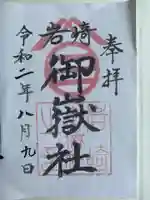 奉拝
岩崎
御嶽社
令和二年八月九日